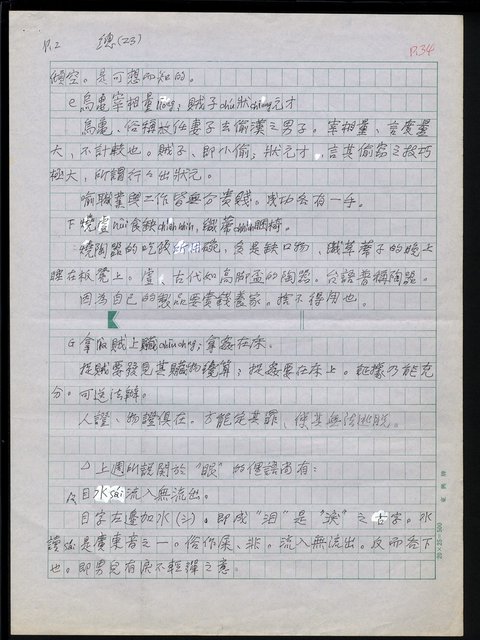 P.2 總(23) P.34
傾空。是可想而知的。
e 烏龜宰相量; 賊子狀元才
烏龜、俗稱放任妻子去偷漢之男子。宰相量、言度量
大、不計較也。賊子、即小偷; 狀元才、言其偷窃之技巧
極大、所謂行行出狀元。
喻職業與工作皆無分貴賤。成功各有一手。
F 燒食缺, 織蓆睏椅。
燒陶器的吃飯所用碗、急是缺口物、織草蓆子的晚上
睡在板凳上。古代如高腳盃的陶器。台語普稱陶器。
因為自己的製品要賣錢養家。捨不得用也。
G 拿賊上贓; 拿姦在床。
捉賊要發見其贓物纔算; 捉姦要在床上。証據乃能充
分。可送法辦。
人證、物證俱在。才能定其罪、使其無法逃脫。
△上週所說關於"眼"的俚語尚有:
目水流入無流出。
目字左邊加水(氵)。即成"泪"是"淚"之古字。水
讀是廣東音之一。俗作屎、非。流入無流出。反而吞下
也。即男兒有淚不輕彈之意。